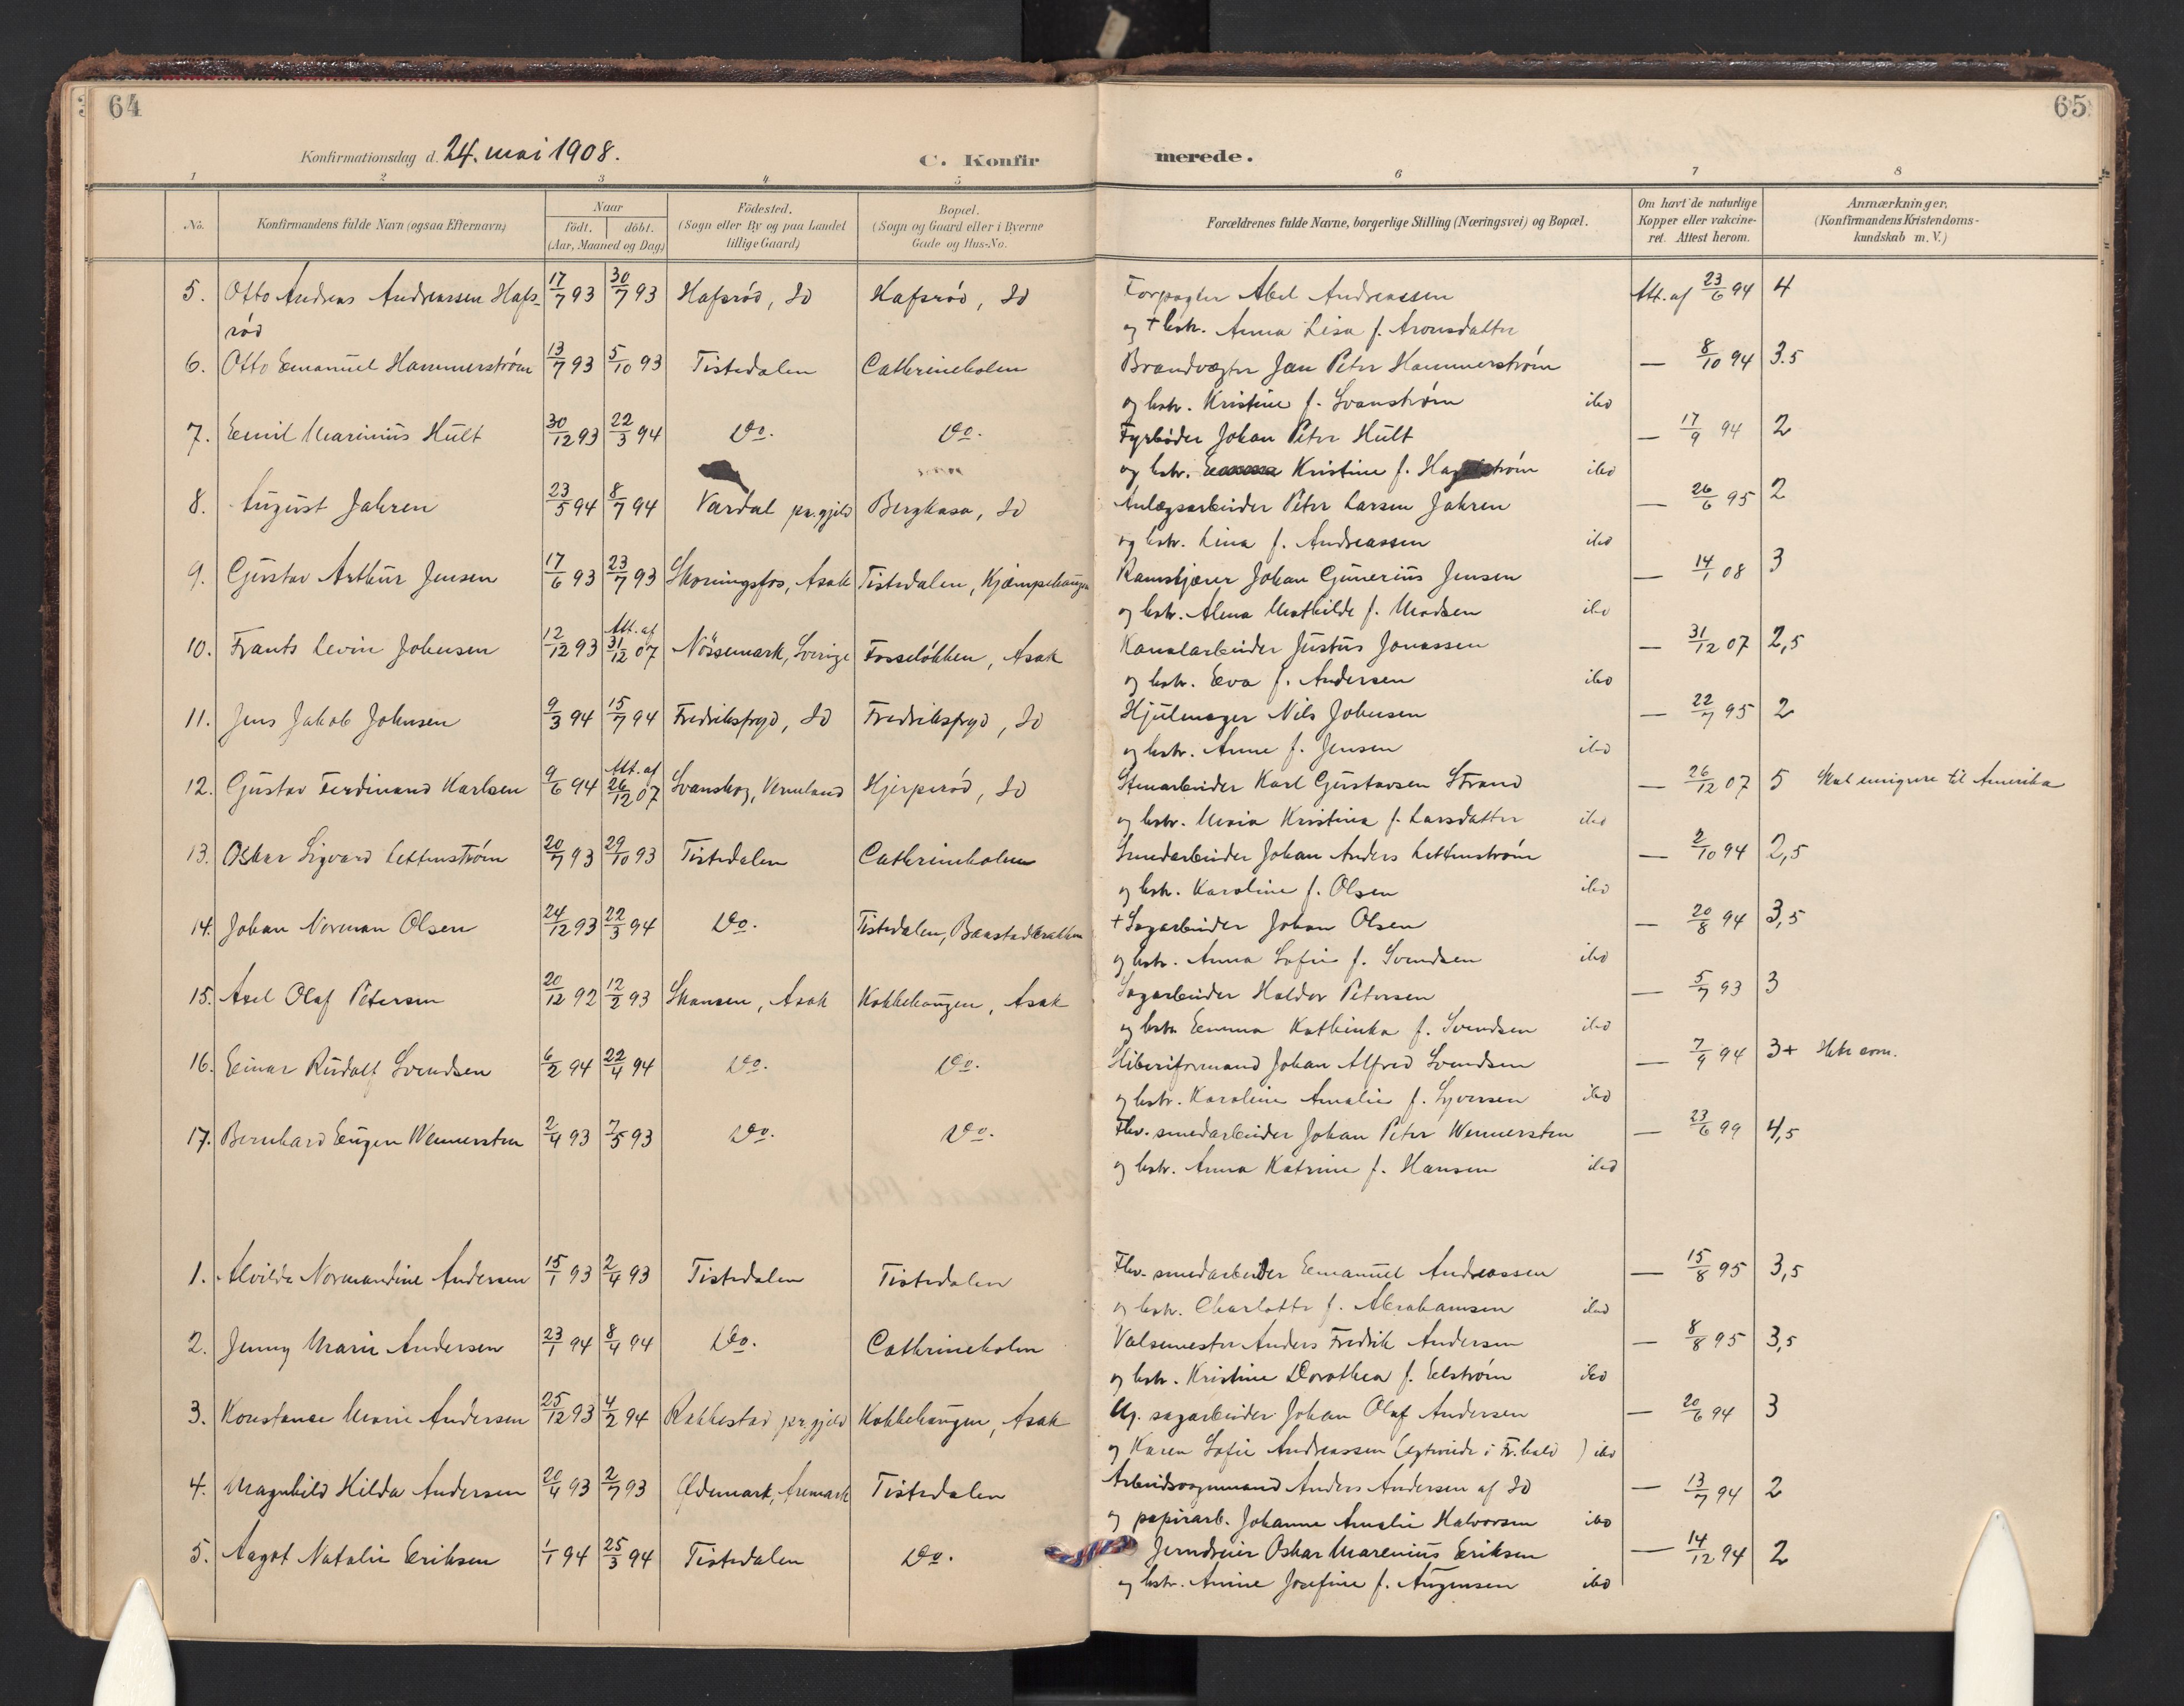 64
65
Konfirmationsdag d. 24. mai 1908.
C. Konfir
merede.
1 2 3 4 5 6 7 8
No.
Konfirmandens fulde Navn (ogsaa Efternavn)
Naar
födt. döbt.
(Aar, Maaned og Dag)
Födested.
(Sogn eller By og paa Landet
tillige Gaard)
Bopæl.
(Sogn og Gaard eller i Byerne
Gade og Hus-No.
Forældrenes fulde Navne, borgerlige Stilling (Næringsvei) og Bopæl.
Om havt de naturlige
Kopper eller vakcine-
ret. Attest herom.
Anmærkninger,
(Konfirmandens Kristendoms-
kundskab m. V.)
5. Otto Andreas Andreassen Hafs- 17/7 93 30/7 93 Hafsröd, Id Hafsröd, Id Forpagter Abel Andreassen Att. af 23/6 94 4
röd og + hstr. Anna Lisa f. Aronsdatter
6. Otto Emanuel Hammerström 13/7 93 5/10 93 Tistedalen Cathrineholm Brandvagter Jan Peter Hammerström — 8/10 94 3.5
og hstr. Kristine f. Svanström ibd
7. Emil Marinius Hult 30/12 93 22/3 94 Do. Do. Fyrböder Johan Peter Hult — 17/9 94 2
og hstr. Kristine f. ibd
8. August Jahren 23/5 94 8/7 94 Vardal pr.gjeld Bergkasa, Id Anlægsarbeider Peter Larsen Jahren — 26/6 95 2
og hstr. Lina f. Andreassen ibd
9. Gustav Arthur Jensen 17/6 93 23/7 93 Skoningsfos, Asak Tistedalen, Kjæmpehaugen Ramskjærer Johan Gunerius Jensen — 14/1 08 3
og hstr. Alma Mathilde f. Madsen ibd
10. Frants Levin Johnsen 12/12 93 Att. af 31/12 07 Nössemark, Sverige Fosselökken, Asak Kanalarbeider Justus Jonassen — 31/12 07 2,5
og hstr. Eva f. Andersen ibd
11. Jens Jakob Johnsen 9/3 94 15/7 94 Fredriksfryd, Id Fredriksfryd, Id Hjulmager Nils Johnsen — 22/7 95 2
og hstr. Anne f. Jensen ibd
12. Gustav Ferdinand Karlsen 9/6 94 Att. af 26/12 07 Svanskog, Vermland Hjerperöd, Id Stenarbeider Karl Gustavsen Strand — 26/12 07 5 Skal emigrere til Amerika
og hstr. Maria Kristina f. Larsdatter ibd
13. Oskar Sigvard Lettenström 20/7 93 29/10 93 Tistedalen Cathrineholm Smedarbeider Johan Anders Lettenström — 2/10 94 2,5
og hstr. Karoline f. Olsen ibd
14. Johan Norman Olsen 24/12 93 22/3 94 Do. Tistedalen, Baastadbrakken + Sagarbeider Johan Olsen — 20/8 94 3,5
og hstr. Anna Sofie f. Svendsen ibd
15. Axel Olaf Petersen 20/12 92 12/2 93 Skansen, Asak Kokkehaugen, Asak Sagarbeider Haldor Petersen — 5/7 93 3
og hstr Emma Kathinka f. Svendsen ibd
16. Einar Rudolf Svendsen 6/2 94 22/4 94 Do. Do. Sliberiformand Johan Alfred Svendsen — 7/9 94 3+
og hstr. Karoline Amalie f. Syversen ibd
17. Bernhard Eugen Wennersten 2/4 93 7/5 93 Do. Do. Fhv. smedarbeider Johan Peter Wennersten — 23/6 99 4,5
og hstr. Anna Katrine f. Hansen ibd
1. Alvilde Normandine Andersen 15/1 93 2/4 93 Tistedalen Tistedalen Fhv. smedarbeider Emanuel Andreassen — 15/8 95 3,5
og hstr. Charlotte f. Abrahamsen ibd
2. Jenny Marie Andersen 23/1 94 8/4 94 Do. Cathrineholm Valsemester Anders Fredrik Andersen — 8/8 95 3,5
og hstr. Kristine Dorothea f. Elström ibd
3. Konstanse Marie Andersen 25/12 93 4/2 94 Rakkestad pr.gjeld Kokkehaugen, Asak Ug. sagarbeider Johan Olaf Andersen — 20/6 94 3
og Karen Sofie Andreassen (egtviede i Fr.hald) ibd
4. Magnhild Hilda Andersen 20/4 93 2/7 93 Ødemark, Aremark Tistedalen Arbeidsogmand Anders Andersen af Id — 13/7 94 2
og papirarb. Johanne Amalie Halvorsen ibd
5. Aagot Natalie Eriksen 1/1 94 25/3 94 Tistedalen Do. Jerndreier Oskar Marenius Eriksen — 14/12 94 2
og hstr. Anine Josefine f. Augensen ibd